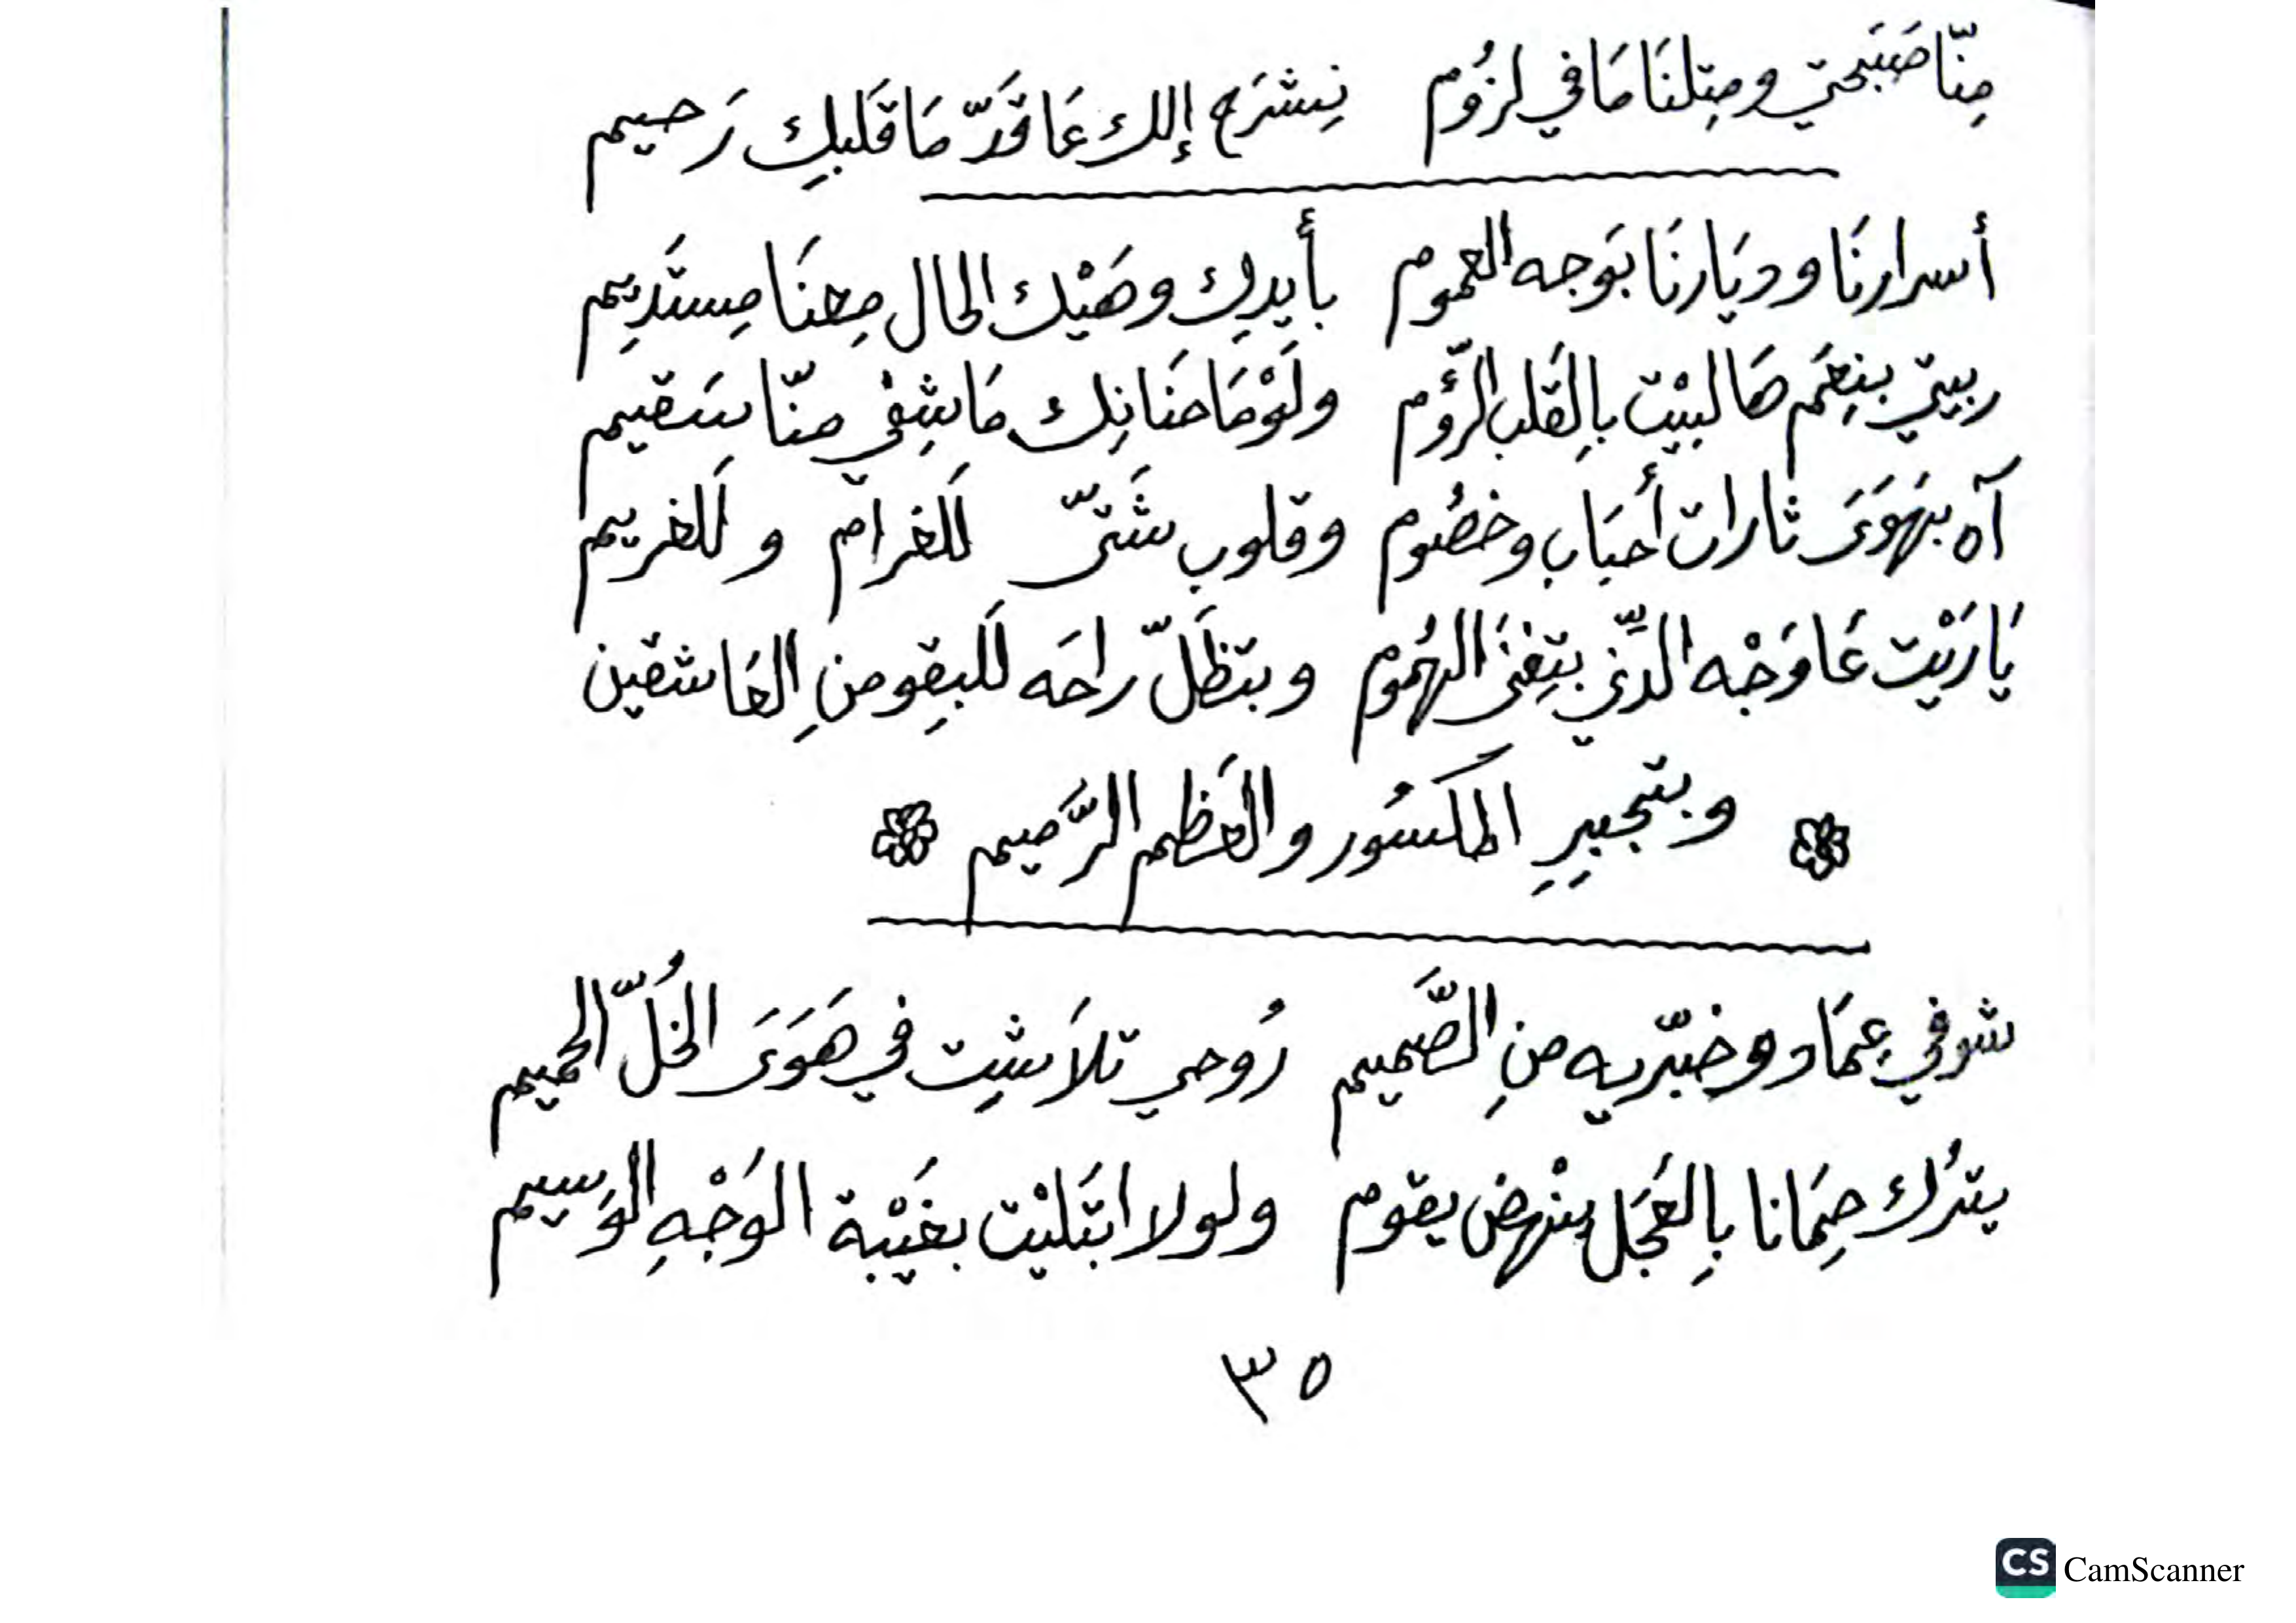 مِنّا صَبَحتي ومِتلنَا مَا في لزُوم نِشرَح إلك عَا قَدّ مَا قَلبِك رَحيم
أسرارنَا وديَارنَا بوَجه العموم بأيدِك وهَيْك الحال مِعنَا مِستَدِيم
ربيتي بنِعَم هَالبيْت بِالقَلب الرَّؤم ولَوْمَا حنَانِك مَا شِفْي منّا سَقيم
آه بهوَىَ ثارات أحبَاب وخصُوم وقلوب شَتّى لَلغرام ولَلغريم
يَا رَيْت عَا وَجْه الدِّني بتِفنَى الهُموم وبتظَلّ راحَه لَلبِقو منِ العَاشقين
وبتجبِيرِ المكسُور والعَظم الرَّميم
شوفي عِمَاد وخبّريه منِ الصَّميم رُوحي تلاَشِت في هَوَىَ الخُلّ الحميم
يترُك حِمَانا بِالعَجَل ينْهض يقوم ولولا ابتَليْت بغَيْبة الوَجْهِ الوَسيم
٣٥
CS CamScanner